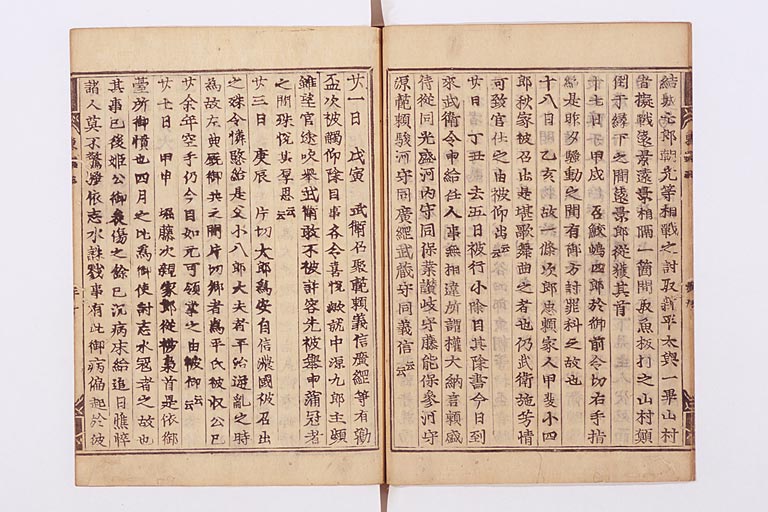 結城七郎朝光等相戰之討取新平太與一畢山村
者擬戰遠景遠景相隔一箇間取魚板打之山村顛
倒于縁下之間遠景郎從獲其首
十七日 甲戌 召鮫嶋四郎於御前令切右手指
給是昨夕騒動之間有御方討罪科之故也
十八日 乙亥 故一條次郎忠頼家人甲斐小四
郎秋家被召出是堪歌舞曲之者也仍武衛施芳情
可致官仕之由被仰出云云
廿日 丁丑 去五日被行小除目其除書今日到
來武衛令申給任人事無相違所謂權大納言頼盛
侍從同光盛河内守同保業讃岐守藤能保參河守
源範頼駿河守同廣綱武藏守同義信云云
廿一日 戊寅 武衛召聚範頼義信廣綱等有勸
盃次被觸仰除目事各令喜悦歟就中源九郎主頻
雖望官途吹擧武衛敢不被許容先被擧申蒲冠者
之間殊悦其厚恩云云
廿三日 庚辰 片切太郎爲安自信濃國被召出
之殊令憐愍給是父小八郎大夫者平治逆亂之時
爲故左典厩御共之間片切郷者爲平氏被收公已
廿余年空手仍今日如元可領掌之由被仰云云
廿七日 甲申 堀藤次親家郎從被梟首是依御
臺所御憤也四月之比爲御使討志水冠者之故也
其事已後姫公御哀傷之餘已沈病床給追日憔悴
諸人莫不驚騒依志水誅戮事有此御病偏起於彼